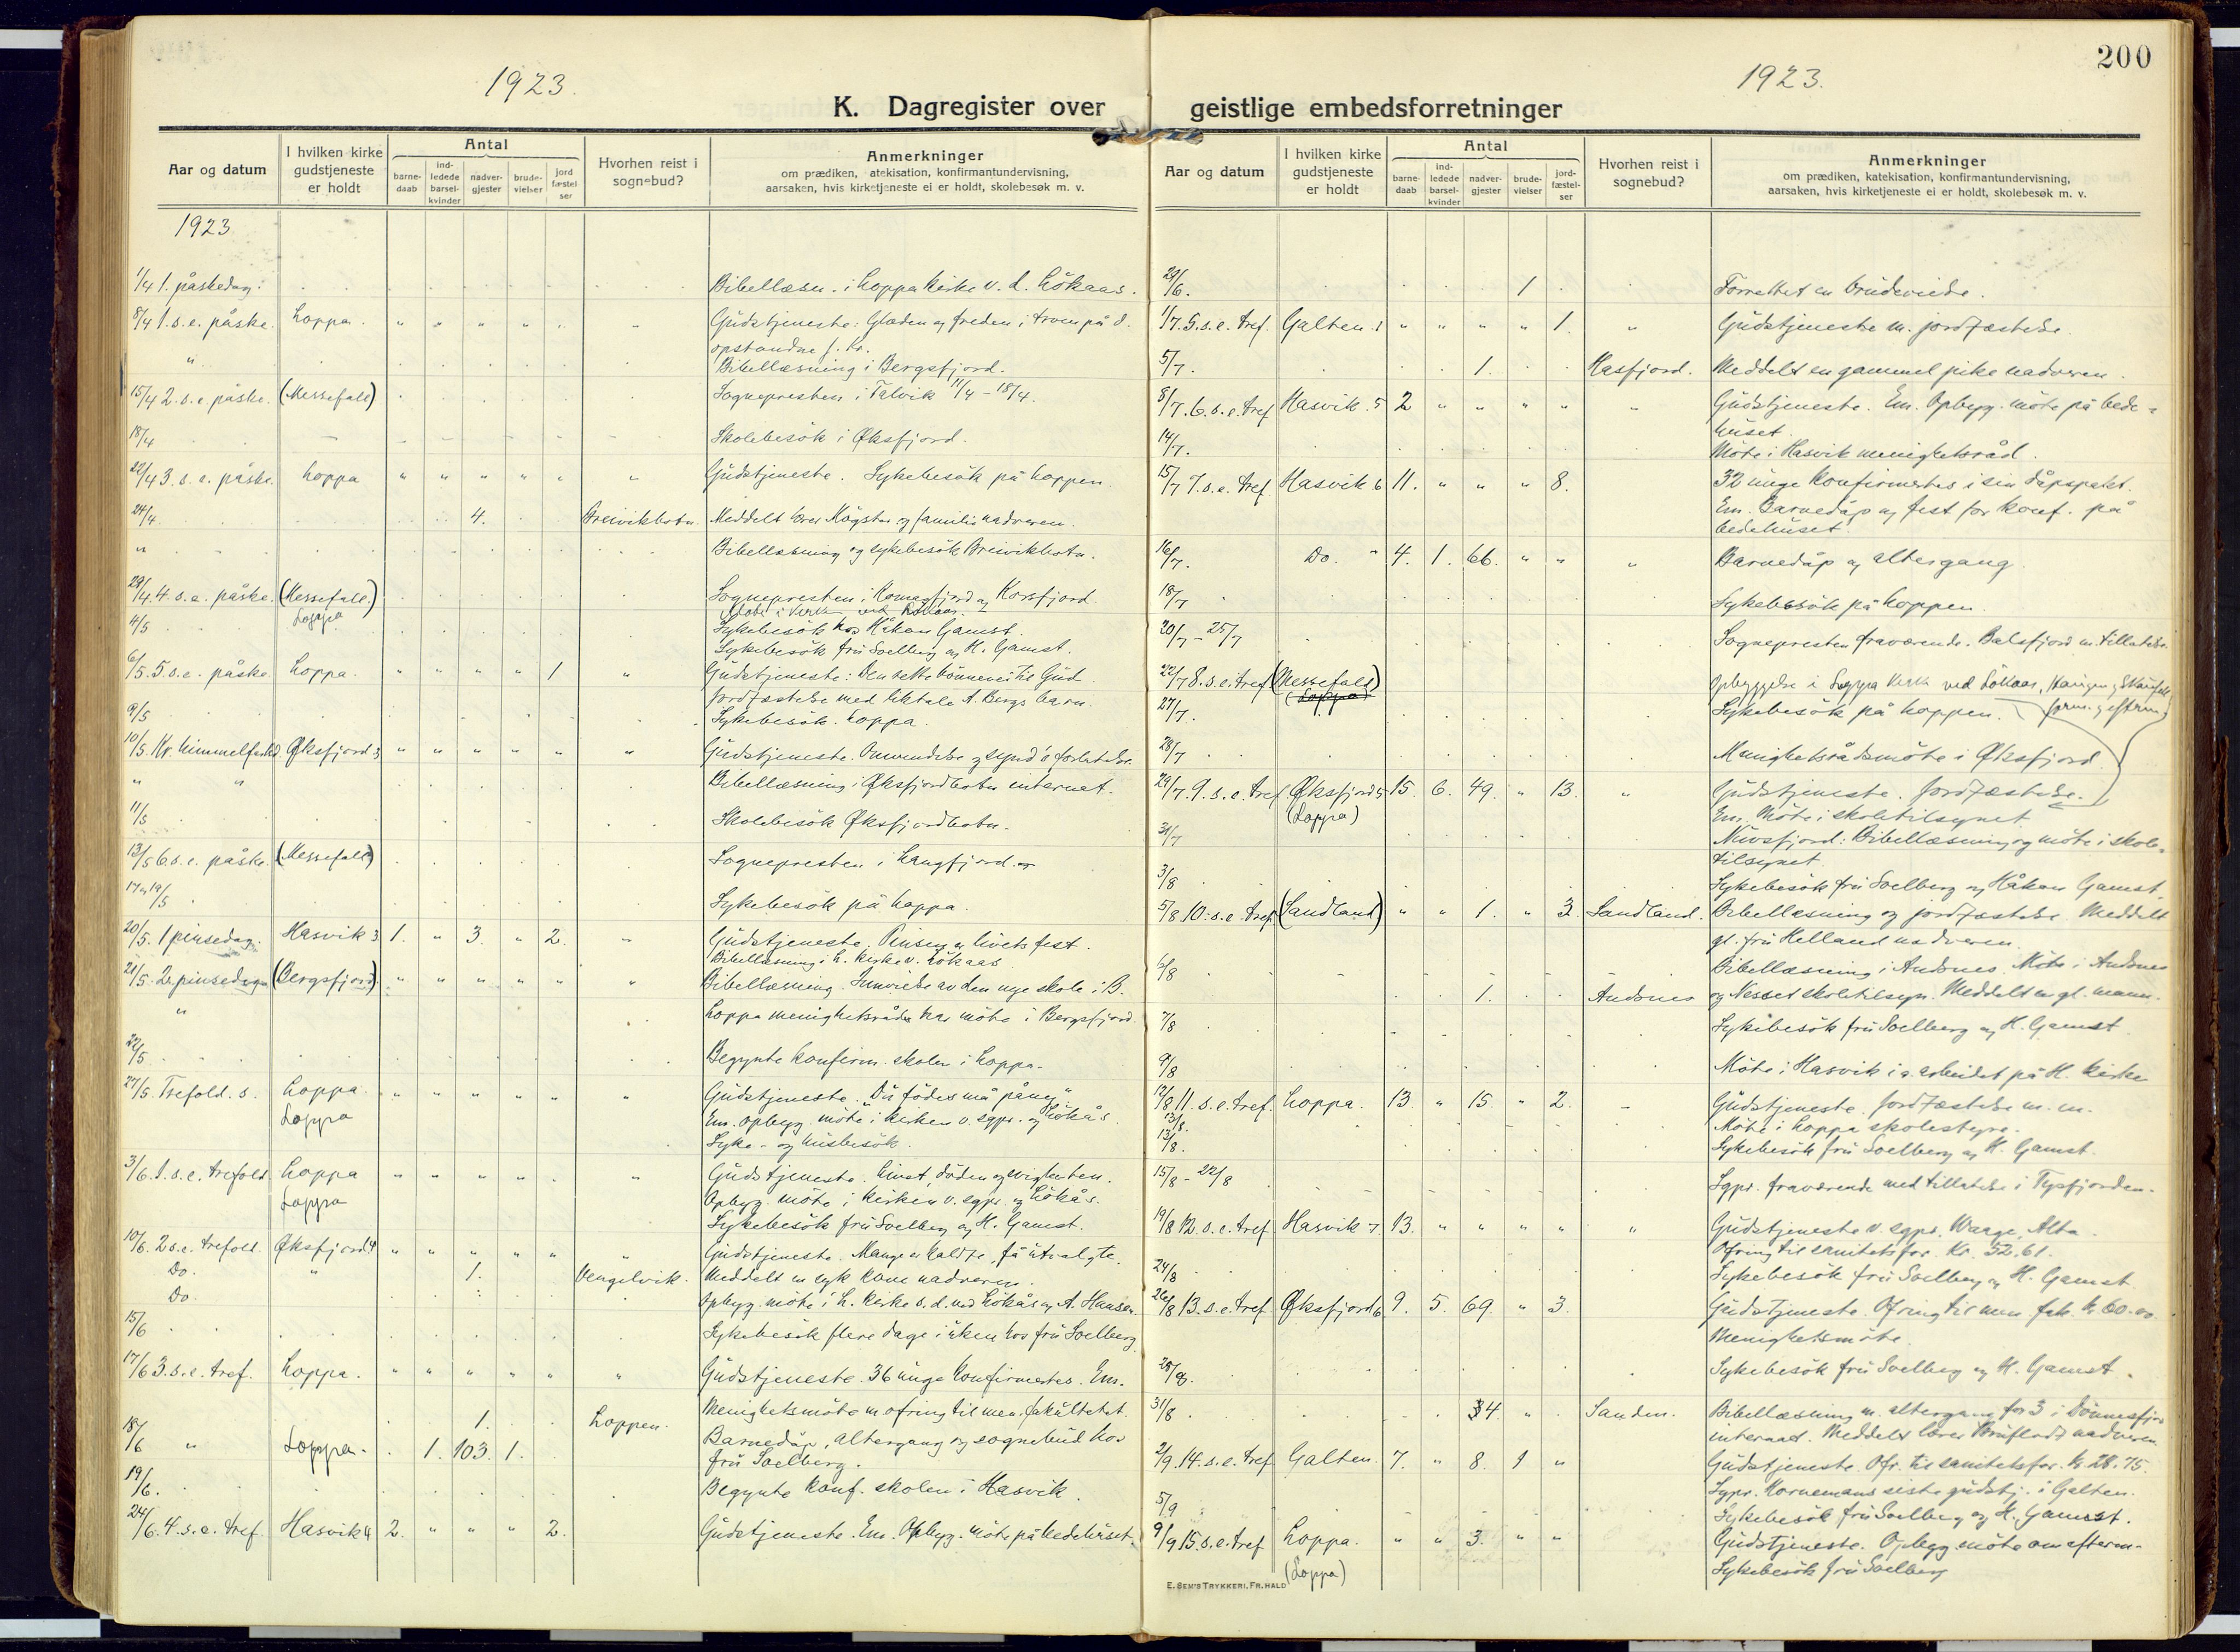 200
1923.
1923.
K. Dagregister over geistlige embedsforretninger
Aar og datum
I hvilken kirke gudstjeneste er holdt
Antal
barne-daab
ind-ledede barsel-kvinder
nadver-gjester
brude-vielser
jord fæstel ser
Hvorhen reist i sognebud?
Anmerkninger
om prædiken, atekisation, konfirmantundervisning,
aarsaken, hvis kirketjeneste ei er holdt, skolebesøk m. v.
1923
1/4 1. påskedag. Bibellæsn. i Loppa kirke v. L. Lökaas.
8/4 1. s. e. påske. Loppa. " " " " " " Gudstjeneste: Glæden og freden i troen på d.
opstandne J. Kr.
" Bibellæsning i Bergsfjord.
15/4 2. s. e. påske. (Messefall) Sognepresten i Talvik 11/4 - 18/4.
18/4 Skolebesök i Øksfjord.
22/4 3. s. e. påske. Loppa " " " " " " Gudstjeneste. Sykebesök på Loppen.
24/4 4. Breivikbotn. Meddelt familie nadveren.
" Bibellæsning og sykebesök Breivikbotn.
29/4 4. s. e. påske. (Messefall) Sognepresten i Komagfjord og Korsfjord
Loppa
4/5 Sykebesök hos Håkon Gamst.
Sykebesök fru Soelberg og H. Gamst.
6/5. 5. s. e. påske Loppa. " " " " 1 " Gudstjeneste: Den rette bönnevei til Gud.
Jordfæstelse med liktale A. Bergs barn.
9/5 Sykebesök. Loppa.
10/5. Kr. himmelfartsd. Øksfjord 3 " " " " " " Gudstjeneste. Omvendelse og synd's forlatelse.
" " Bibellæsning i Øksfjordbotn internat.
11/5 Skolebesök Øksfjordbotn.
13/5 6. s. e. påske. (Messefall) Sognepresten i Langfjord.
17 og 19/5 Sykebesök på Loppa.
20/5. 1 pinsedag. Hasvik 3 1. " 3. " 2. " Gudstjeneste. Pinsen er livets fest.
Bibellæsning i L. kirke v. Lökaas
21/5. 2. pinsedag (Bergsfjord) " " " " " " Bibellæsning. Innvielse av den nye skole i B.
" Loppa menighetsråd har møte i Bergsfjord.
22/5 Begynte konfirm. skolen i Loppa.
27/5. Trefold. s. Loppa. " " " " " " Gudstjeneste. "Du födes må påny."
Loppa Em. opbygg. möte i kirken v. sgpr. og Lökås
Syke- og husbesök.
3/6. 1. s. e. trefold. Loppa " " " " " " Gudstjeneste. Livet, döden og evigheten.
Loppa Opbygg. möte i kirken v. sgpr. og Lökås.
Sykebesök fru Soelberg og H. Gamst.
10/6. 2 s. e. trefold. Øksfjord 4 " " " " " " Gudstjeneste. Mange er kaldte, få utvalgte.
Do. " 1. Vengelvik. Meddelt en syk kone nadveren.
Do. Opbygg. möte i L. kirke s. d. ved Lökås og A. Hansen.
15/6 Sykebesök flere dage i uken hos fru Soelberg
17/6 3. s. e. tref. Loppa. " " " " " " Gudstjeneste. 36 unge konfirmertes. Em.
1. Loppen. Menighetsmöte m. ofring til men. fakultetet.
18/6 " Loppa. 1. 103. 1. Barnedåp, altergang og sognebud hos
fru Soelberg.
19/6. Begynte konf. skolen i Hasvik.
24/6. 4. s. e. tref. Hasvik 4 2. " " " 2. Gudstjeneste. Em. Opbygg. möte på bedehuset.
Aar og datum
I hvilken kirke gudstjeneste er holdt
Antal
barne-daab
ind-ledede barsel-kvinder
nadver-gjester
brude-vielser
jord-fæstel-ser
Hvorhen reist i sognebud?
Anmerkninger
om prædiken, katekisation, konfirmantundervisning,
aarsaken, hvis kirketjeneste ei er holdt, skolebesøk m. v.
29/6. 1 Forrettet en brudevielse.
1/7. 5. s. e. tref. Galten. 1 " " " " 1. " Gudstjeneste m. jordfæstelse.
5/7. 1. Hasfjord. Meddelt en gammel pike nadveren.
8/7. 6. s. e. tref Hasvik. 5 2 " " " " " Gudstjeneste. Em. Opbygg. möte på bede-
huset.
14/7. Möte i Hasvik menighetsråd.
15/7 7. s. e. tref. Hasvik 6 11. " " " 8. 32 unge konfirmertes i sin dåpspakt.
Em. Barnedåp og fest for konf. på
bedehuset.
16/7. Do. " 4. 1. 66. " " " Barnedåp og altergang.
18/7 Sykebesök på Loppen.
20/7 - 25/7 Sognepresten fraværende. Balsfjord m. tillatelse.
22/7 8. s. e. tref (Messefall) Opbyggelse i Loppa kirke ved Lökaas,
(Loppa)
27/7. Sykebesök på Loppen. form. og efterm.
28/7 Menighetsrådsmöte i Øksfjord
29/7. 9. s. e. tref Øksfjord 5 15. 6. 49. " 13. " Gudstjeneste. Jordfæstelse.
(Loppa) Em. Möte i skoletilsynet
31/7 Nuvsfjord: Bibellæsning og möte i skole-
tilsynet.
3/8 Sykebesök fru Soelberg og Håkon Gamst.
5/8 10. s. e. tref (Sandland) " " 1. " 3. Sandland. Bibellæsning og jordfæstelse. Meddelt
gl. fru Helland nadveren.
6/8 Bibellæsning i Andsnes. Möte i Andsnes
1. Andsnes og Nesset skoletilsyn. Meddelt en gl. mann.
7/8 Sykebesök fru Soelberg og H. Gamst.
9/8 Möte i Hasvik i a. arbeidet på H. kirke
12/8 11. s. e. tref. Loppa. 13. " 15. " 2. Gudstjeneste. Jordfæstelse m. m.
13/8. Möte i Loppa skolestyre.
13/8. Sykebesök fru Soelberg og H. Gamst.
15/8 - 22/8 Sgpr. fraværende med tillatelse i Tysfjorden.
19/8 12. s. e. tref Hasvik 7 13. " " " " " Gudstjeneste v. sgpr. Waage, Alta.
Ofring til sanitetsfor. Kr. 52.61.
24/8 Sykebesök fru Soelberg og H. Gamst.
26/8 13. s. e. tref Øksfjord 6 9. 5. 69. " 3. Gudstjeneste. Ofring til men. fak. kr 60.00
Menighetsmöte.
28/8. Sykebesök fru Soelberg og H. Gamst.
31/8 4. " Sanden. Bibellæsning m. altergang for 3 i Dönnesfjord
internat. Meddelt nadveren.
2/9. 14. s. e. tref Galten. 7. " 8. 1 " Gudstjeneste. Ofr. til sanitetsfor. kr. 28.75.
Sgpr. Hornemans siste gudstj. i Galten.
5/9 Sykebesök fru Soelberg og H. Gamst.
9/9 15. s. e. tref Loppa. " " 3. " " Gudstjeneste. Opbygg. möte om efterm.
(Loppa) Sykebesök fru Soelberg
E. SEM'S TRYKKERI, FR.HALD